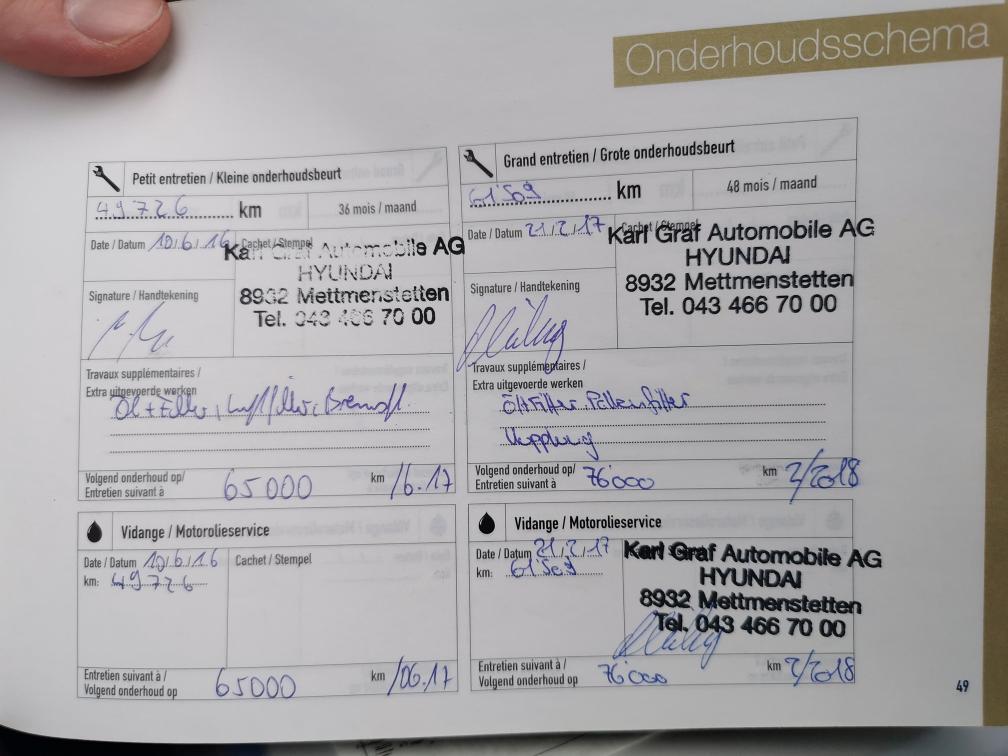 Onderhoudsschema
Petit entretien / Kleine onderhoudsbeurt
49726 km 36 mois / maand
Date / Datum 10/6/16 Cachet / Stempel
Karl Graf Automobile AG
HYUNDAI
8932 Mettmenstetten
Tel. 043 466 70 00
Signature / Handtekening
Travaux supplémentaires /
Extra uitgevoerde werken
Öl + Filter, Luftfilter, Bremsfl.
Volgend onderhoud op/
Entretien suivant à 65000 km /6.17
Grand entretien / Grote onderhoudsbeurt
61'509 km 48 mois / maand
Date / Datum 21/2/17 Cachet / Stempel
Karl Graf Automobile AG
HYUNDAI
8932 Mettmenstetten
Tel. 043 466 70 00
Signature / Handtekening
Travaux supplémentaires /
Extra uitgevoerde werken
Öl+Filter. Pollenfilter
Kupplung
Volgend onderhoud op/
Entretien suivant à 76'000 km 2/2018
Vidange / Motorolieservice
Date / Datum 10/6/16 Cachet / Stempel
km: 49726
Entretien suivant à /
Volgend onderhoud op 65000 km /06.17
Vidange / Motorolieservice
Date / Datum 21/2/17
km: 61'509
Karl Graf Automobile AG
HYUNDAI
8932 Mettmenstetten
Tel. 043 466 70 00
Entretien suivant à /
Volgend onderhoud op 76'000 km 2/2018
49